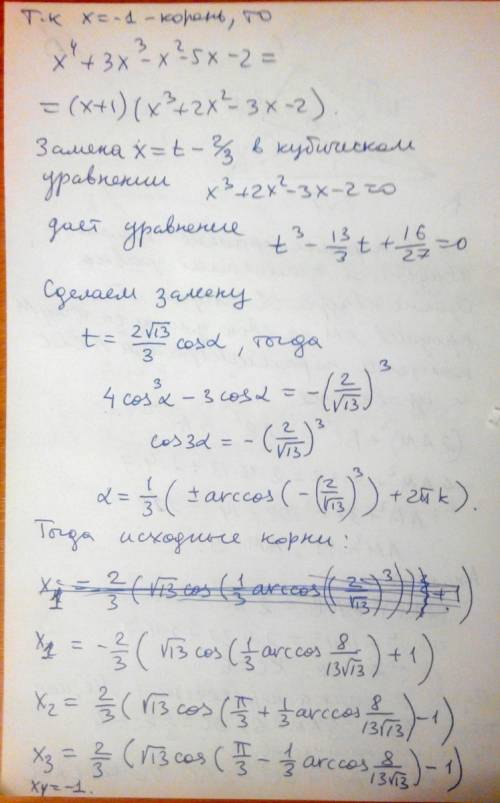 Т.к x=-1 - корень, то
x⁴ + 3x³ - x² - 5x - 2 =
= (x+1) (x³ + 2x² - 3x - 2).
Замена x = t - 2/3 в кубическом
уравнении x³ + 2x² - 3x - 2 = 0
дает уравнение t³ - 13/3 t + 16/27 = 0
Сделаем замену
t = 2√13/3 cosα, тогда
4cos³α - 3cosα = -(2/√13)³
cos3α = -(2/√13)³
α = 1/3 (± arccos(-(2/√13)³) + 2πk).
Тогда исходные корни:
x₁ = 2/3 (√13 cos(1/3 arccos(2/√13)³)) + 1)
x₁ = -2/3 (√13 cos(1/3 arccos 8/13√13) + 1)
x₂ = 2/3 (√13 cos(π/3 + 1/3 arccos 8/13√13) - 1)
x₃ = 2/3 (√13 cos(π/3 - 1/3 arccos 8/13√13) - 1)
x₄ = -1.